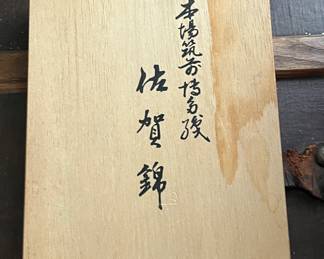 本場筑前博多織
佐賀錦